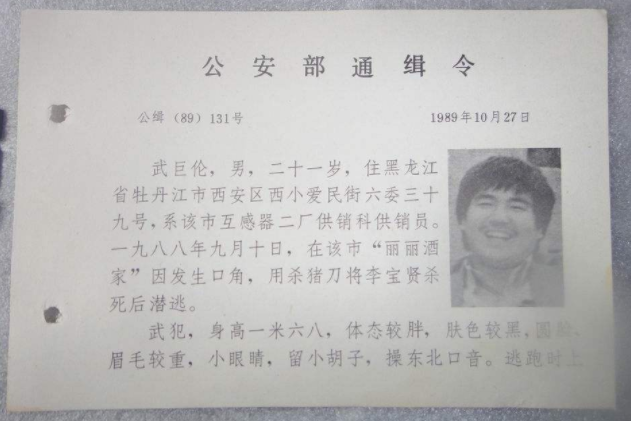 公安部通缉令
公缉（89）131号
1989年10月27日
武巨伦，男，二十一岁，住黑龙江
省牡丹江市西安区西小爱民街六委三十
九号，系该市互感器二厂供销科供销员。
一九八八年九月十日，在该市“丽丽酒
家”因发生口角，用杀猪刀将李宝贤杀
死后潜逃。
武犯，身高一米六八，体态较胖，肤色较黑，圆脸，
眉毛较重，小眼睛，留小胡子，操东北口音。逃跑时上